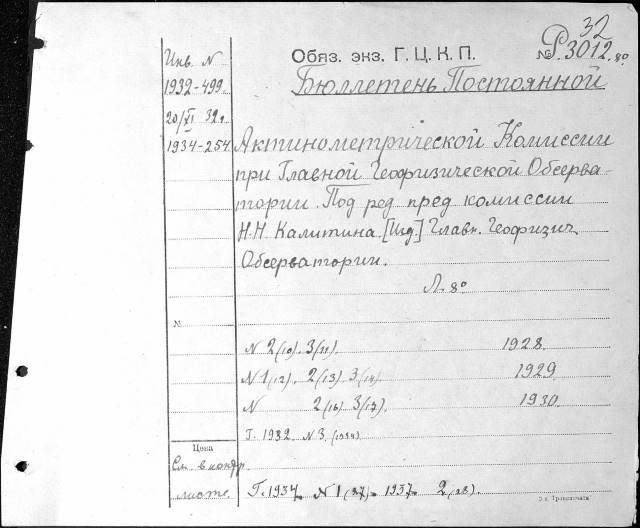 32
Обяз. экз. Г. Ц. К. П. № Р. 3012. 8°
Бюллетень Постоянной
Инв. N
1932-499.
20/XI 32 г.
1934-254
Актинометрической Комиссии
при Главной Геофизической Обсерва-
тории. Под ред. пред. комиссии
Н.Н. Калитина. [Изд.] Главн. Геофизич.
Обсерватории.
Л. 8°
№
N 2(10). 3(11). 1928.
N 1(12). 2(13) 3(14). 1929.
N 2(16) 3(17). 1930.
Г. 1932 N 3.
Цена
См. в контр.
листе.
Г. 1934. N 1(27). 1937. 2(28).